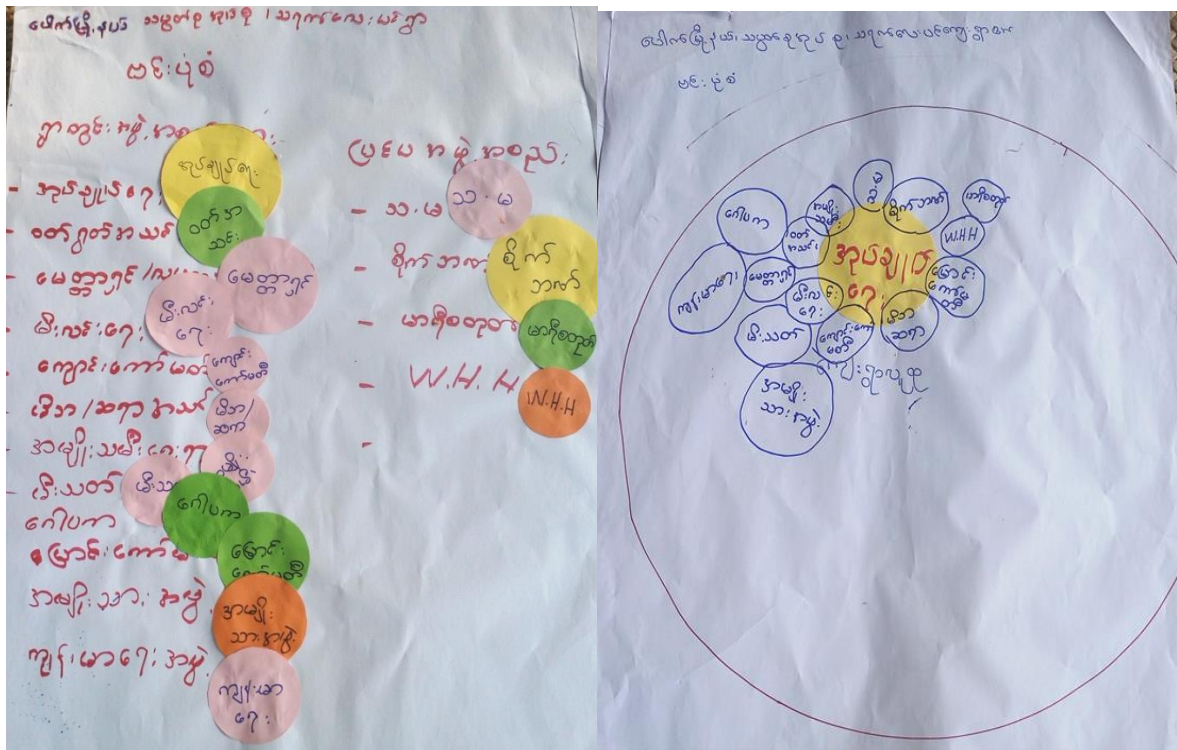 ပေါက်မြို့နယ် သမ္ဗတ်စု အုပ်စု၊ သရက်လေးပင်ရွာ
ဗင်းပုံစံ
ရွာတွင်းအဖွဲ့အစ
- အုပ်ချုပ်ရေး
- ဝတ်ရွတ်အသင်း
- မေတ္တာရှင်
- မီးလင်းရေး
- ကျောင်းကော်မတ
- မိဘ/ဆရာအသင်း
အမျိုးသမီးရေးရာ
- မီးသတ်
ဂေါပက
မြောင်းကော်မ
အမျိုးသားအဖွဲ့
ကျန်းမာရေးအဖွဲ့
အုပ်ချုပ်ရေး
ဝတ်အ
သင်း
မေတ္တာရှင်
မီးလင်း
ရေး
ကျောင်း
ကော်မတီ
မိဘ/
ဆရာ
မီးသ
ဂေါပက
မြောင်း
ကော်မတီ
အမျိုး
သားအဖွဲ့
ကျန်းမာ
ရေး
ပြင်ပအဖွဲ့အစည်း
- သ.မ
- စိုက်ဘဏ်
- မာရီစတုတ်
- W.H.H
-
သ.မ
စိုက်
ဘဏ်
မာရီစတုတ်
W.H.H
ပေါက်မြို့နယ်၊ သမ္ဗတ်စုအုပ်စု၊ သရက်လေးပင်ကျေးရွာ
ဗင်းပုံစံ
ဂေါပက
ဝတ်
အသင်း
အမျိုး
သမီး
သ.မ
စိုက်ဘဏ်
မာရီစတုတ်
W.H.H
မြောင်း
ကော်မ
တီ
အုပ်ချုပ်
ရေး
ကျန်းမာရေး
မေတ္တာရှင်
မီးလင်း
ရေး
မိဘ
ဆရာ
မီးသတ်
ကျောင်းကော်
မတီ
ကျေးရွာလူထု
အမျိုး
သားအဖွဲ့